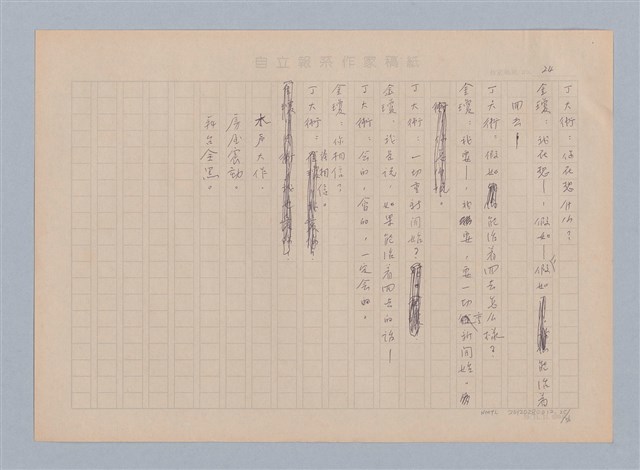 自立報系作家稿紙
24
丁大衛：你在想什么？
金瓊：我在想—，假如—假如能活着
回去！
丁大衛：假如能活着回去怎么樣？
金瓊：我要—，我要，要一切重新開始。
丁大衛：一切重新開始？
金瓊：我是說，如果能活着回去的話—
丁大衛：会的，会的，一定会的。
金瓊：你相信？
丁大衛：我相信。
水声大作。
房屋震動。
舞台全黑。